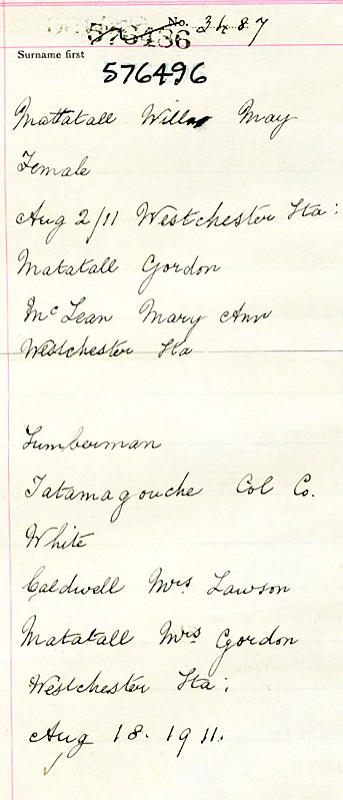 No. 3487
576436
Surname first
576496
Mattatall Willa May
Female
Aug 2/11 Westchester Sta:
Matatall Gordon
McLean Mary Ann
Westchester Sta
Lumberman
Tatamagouche Col Co.
White
Caldwell Mrs Lawson
Matatall Mrs Gordon
Westchester Sta:
Aug 18. 1911.